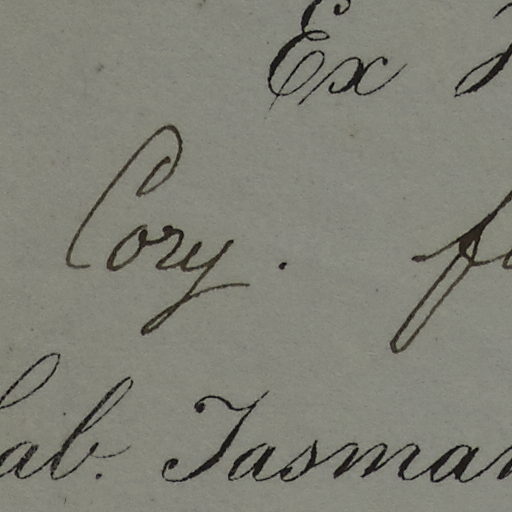 Ex
Cory. f
Hab. Tasman